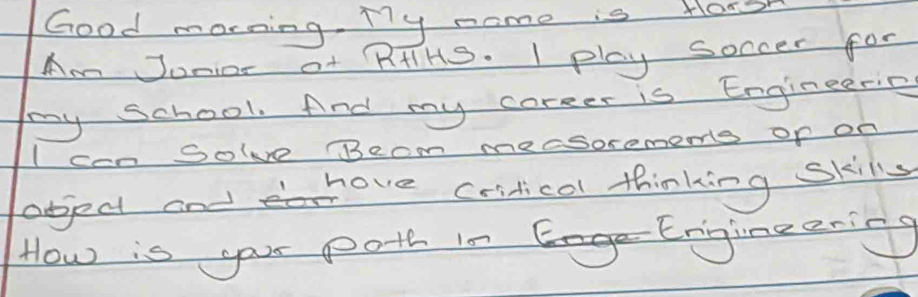 Good morning. My name is Harsh
Am Junior at RHHS. I play Soccer for
my School. And my career is Engineering
I can Solve Beam measurements of an
object and i have Critical thinking Skills
How is your path in Engineering